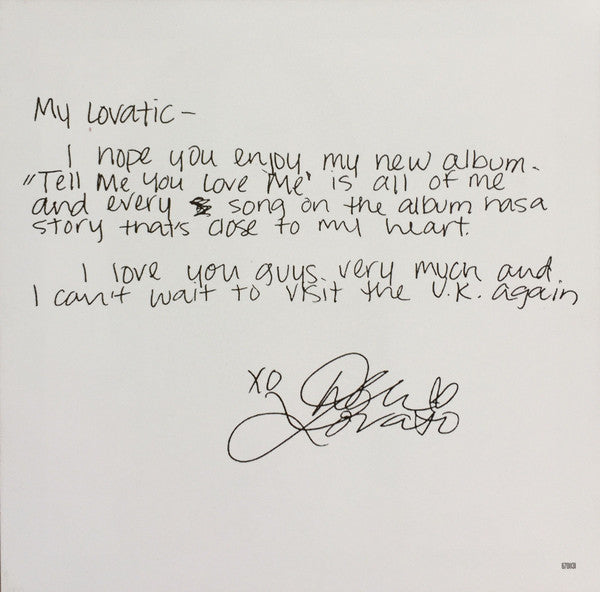 My Lovatic -
I hope you enjoy my new album.
"Tell Me You Love Me" is all of me
and every song on the album has a
story that's close to my heart.
I love you guys very much and
I can't wait to visit the U.K. again
XO Demi
Lovato